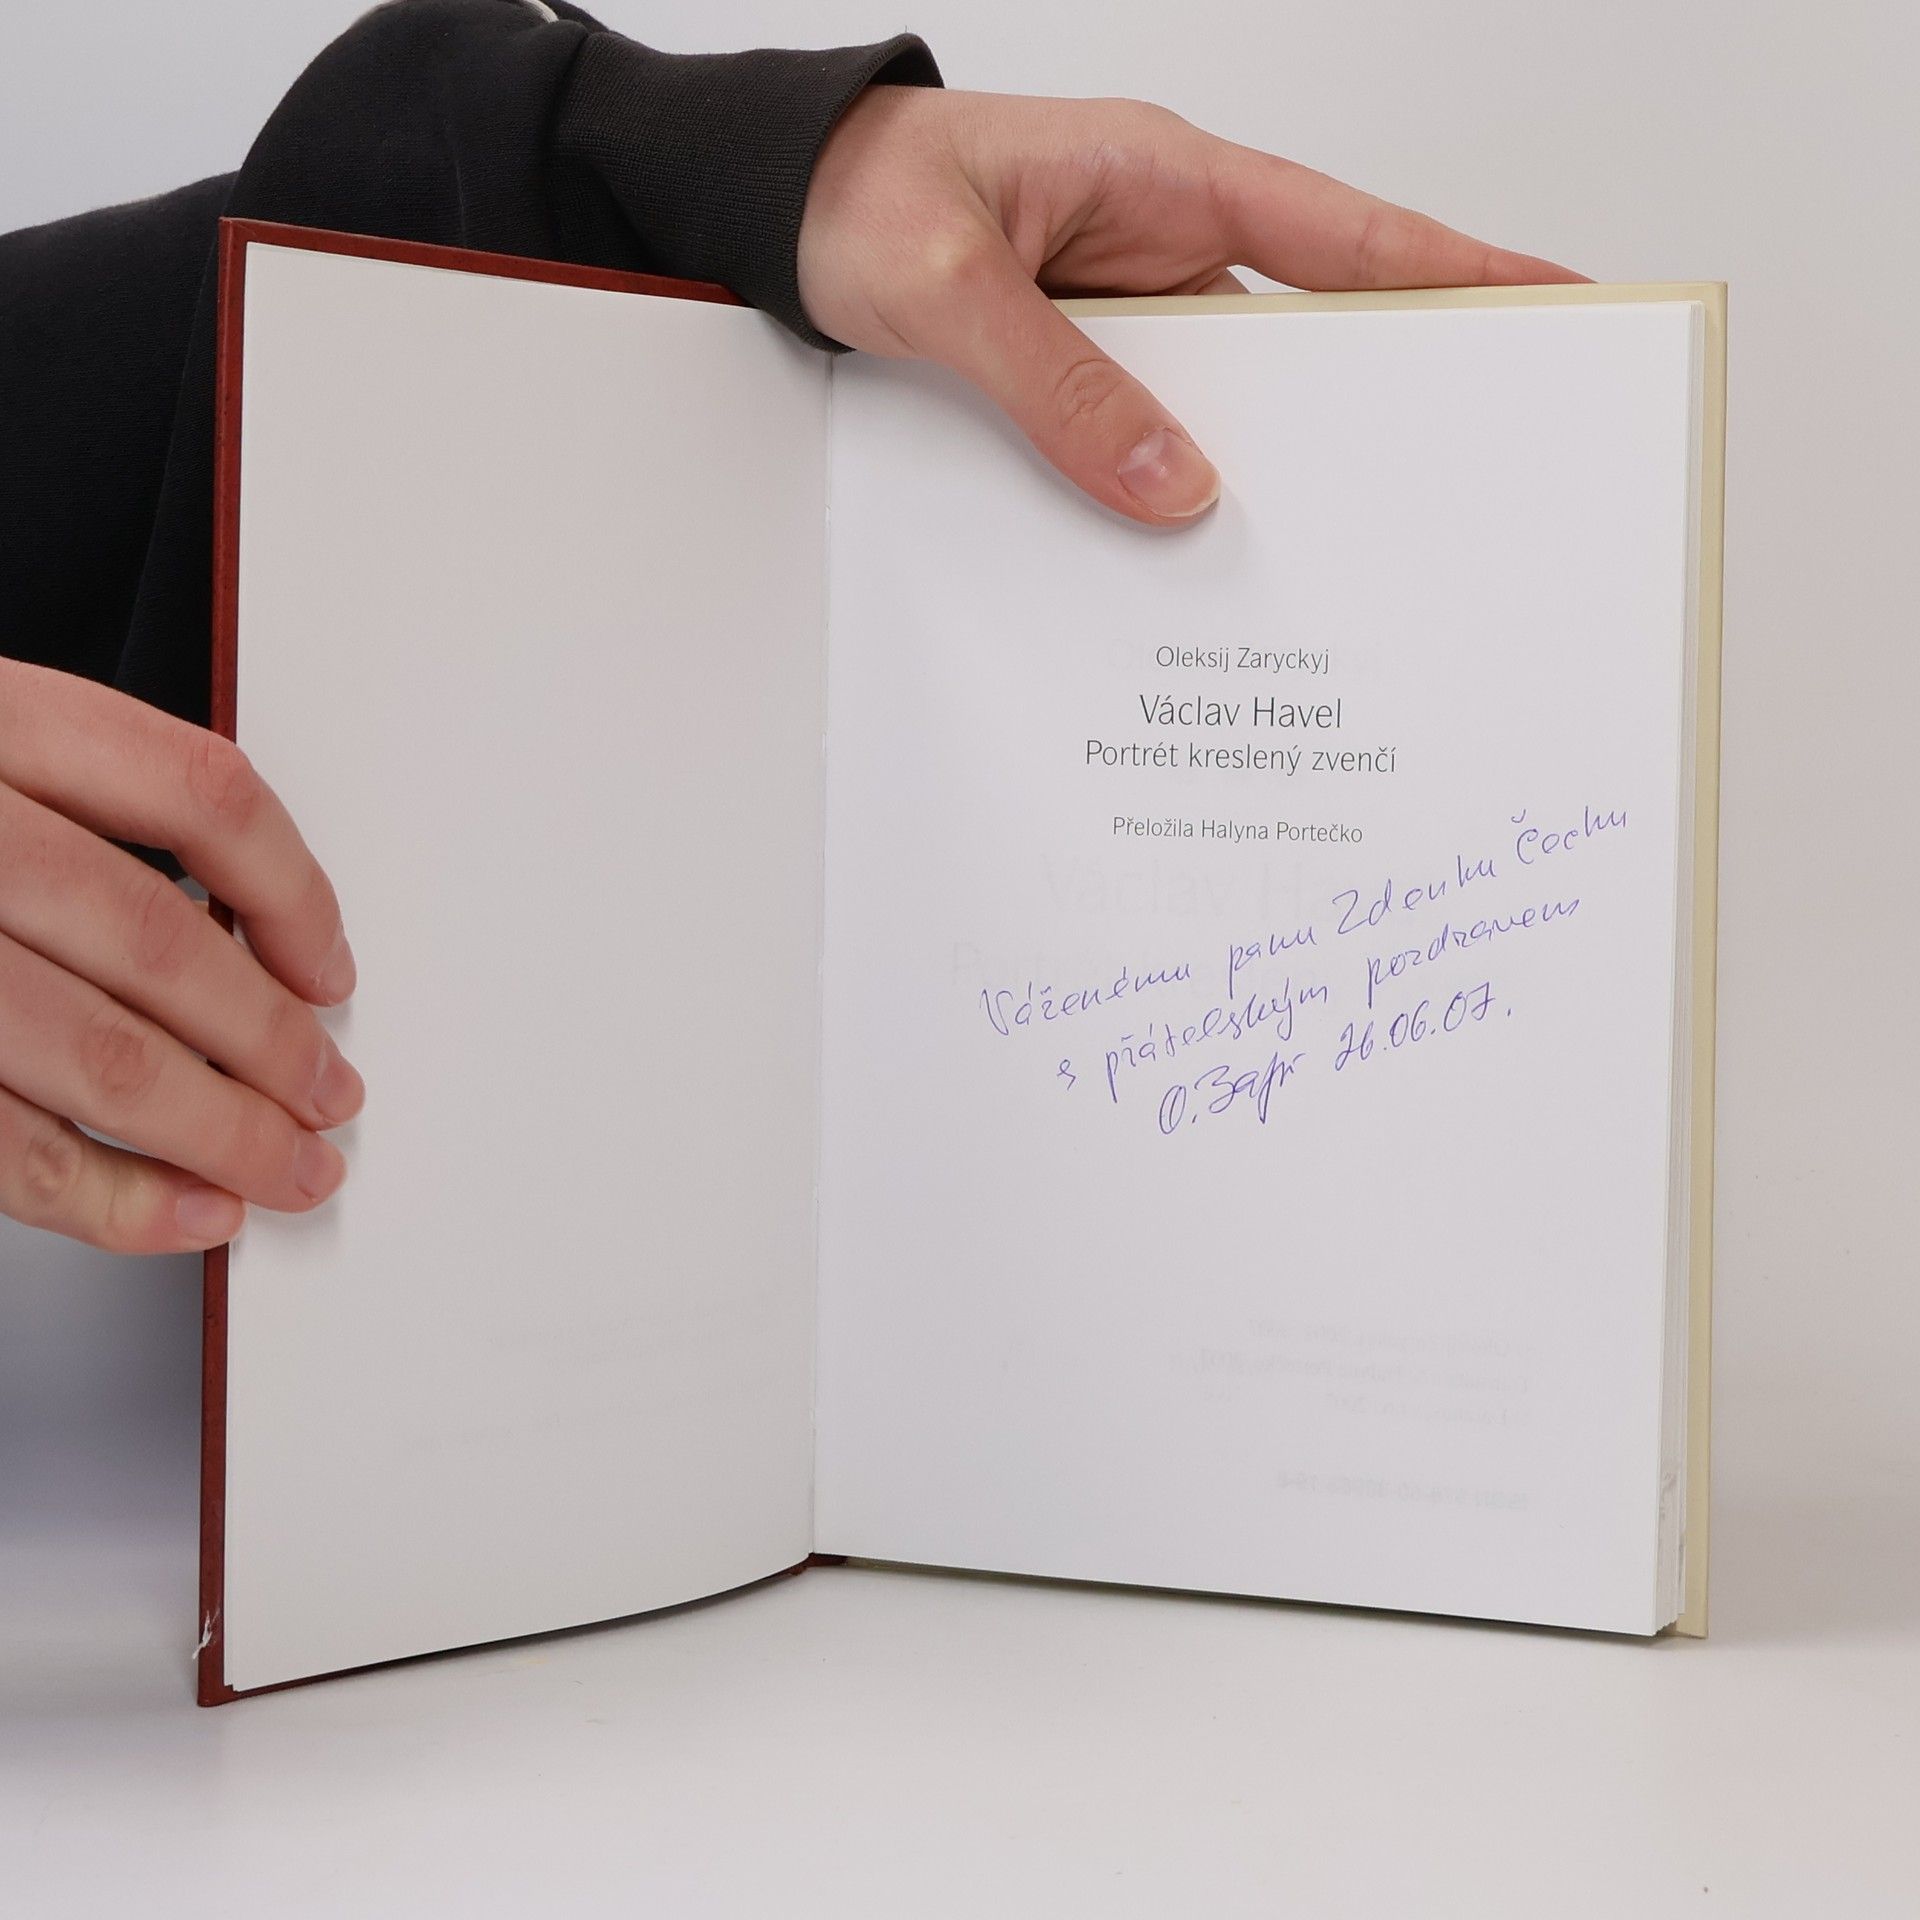 Oleksij Zaryckyj
Václav Havel
Portrét kreslený zvenčí
Přeložila Halyna Portečko
Váženému panu Zdenku Čechu
s přátelským pozdravem
O. 26.06.07.